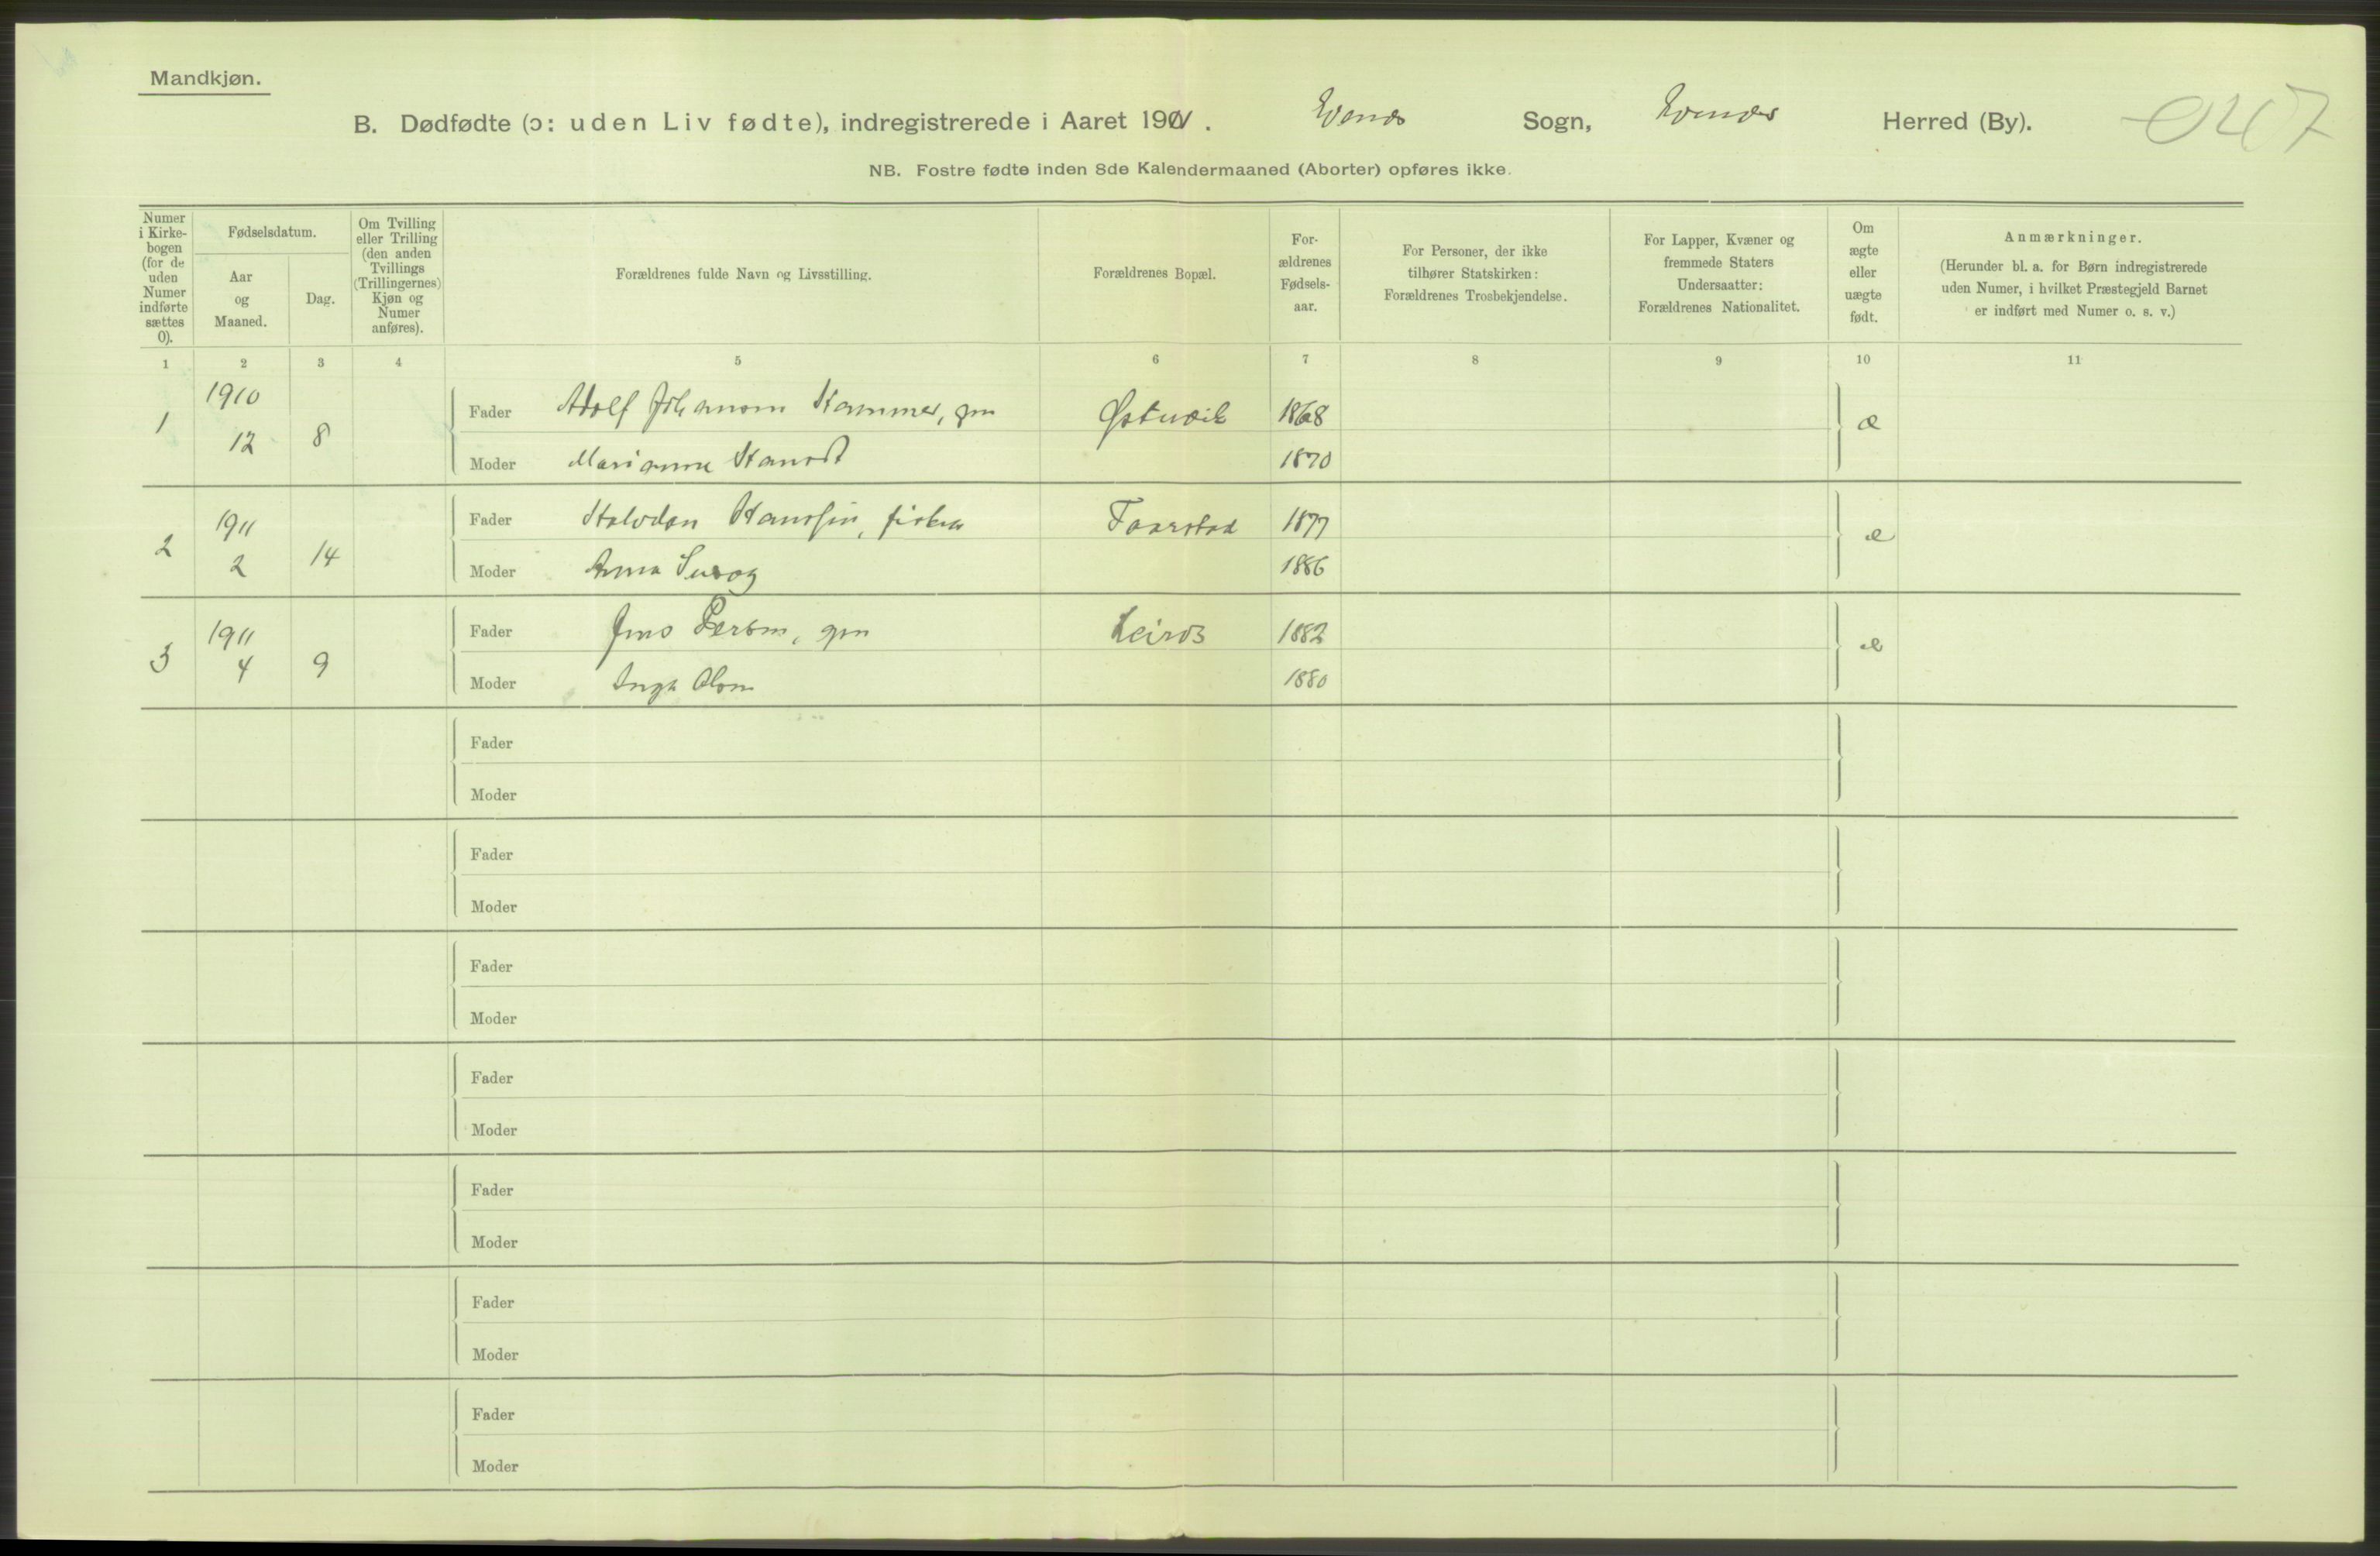 Mandkjøn.
B. Dødfødte (ɔ: uden Liv fødte), indregistrerede i Aaret 1911. Evenes Sogn, Evenes Herred (By).
NB. Fostre fødte inden 8de Kalendermaaned (Aborter) opføres ikke.
Numer i Kirke-bogen (for de uden Numer indførte sættes 0).
Fødselsdatum.
Aar og Maaned.
Dag.
Om Tvilling eller Trilling (den anden Tvillings (Trillingernes) Kjøn og Numer anføres).
Forældrenes fulde Navn og Livsstilling.
Forældrenes Bopæl.
For-ældrenes Fødsels-aar.
For Personer, der ikke tilhører Statskirken: Forældrenes Trosbekjendelse.
For Lapper, Kvæner og fremmede Staters Undersaatter: Forældrenes Nationalitet.
Om ægte eller uægte født.
Anmærkninger.
(Herunder bl. a. for Børn indregistrerede uden Numer, i hvilket Præstegjeld Barnet er indført med Numer o. s. v.)
1 2 3 4 5 6 7 8 9 10 11
1 1910 12 8 Fader Adolf Johansen Hammer, gm Østervik 1868 æ
Moder Marianna 1870
2 1911 2 14 Fader Halvdan Hanssen, fisker Taarstad 1877 æ
Moder Anna 1886
3 1911 4 9 Fader Jens gm Leiros 1882 æ
Moder Inga Olsen 1880
Fader
Moder
Fader
Moder
Fader
Moder
Fader
Moder
Fader
Moder
Fader
Moder
Fader
Moder